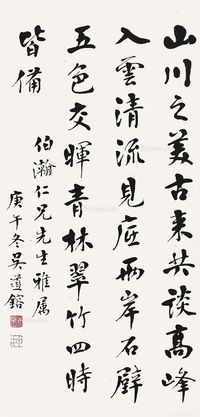 山川之美古来共談高峰
入雲清流見底兩岸石壁
五色交暉青林翠竹四時
皆備
伯瀚仁兄先生雅属
庚午冬吴道鎔